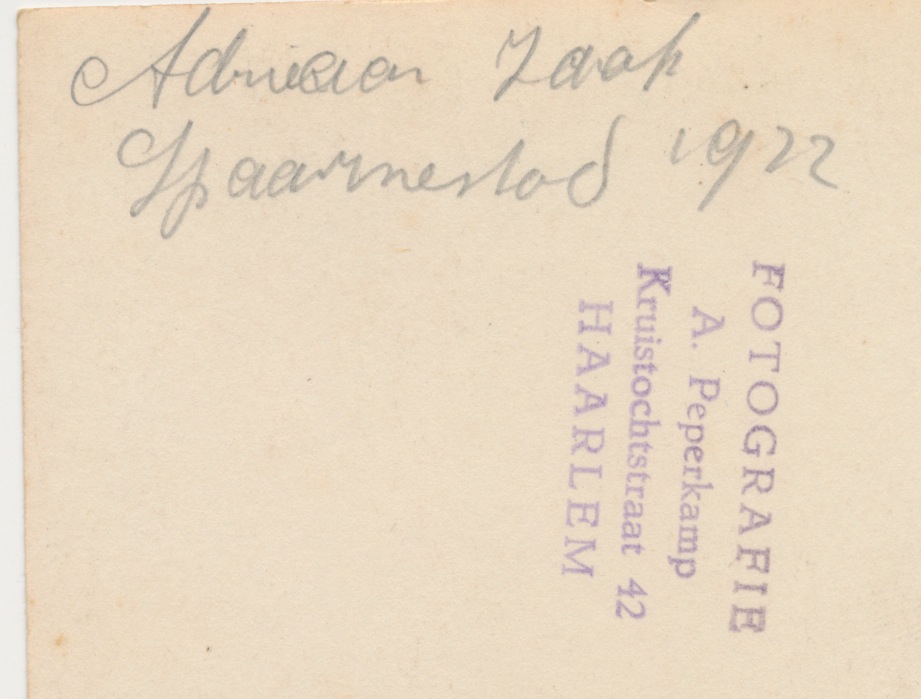 Adriaan
Spaarnestad 1922
FOTOGRAFIE
A. Peperkamp
Kruistochtstraat 42
HAARLEM